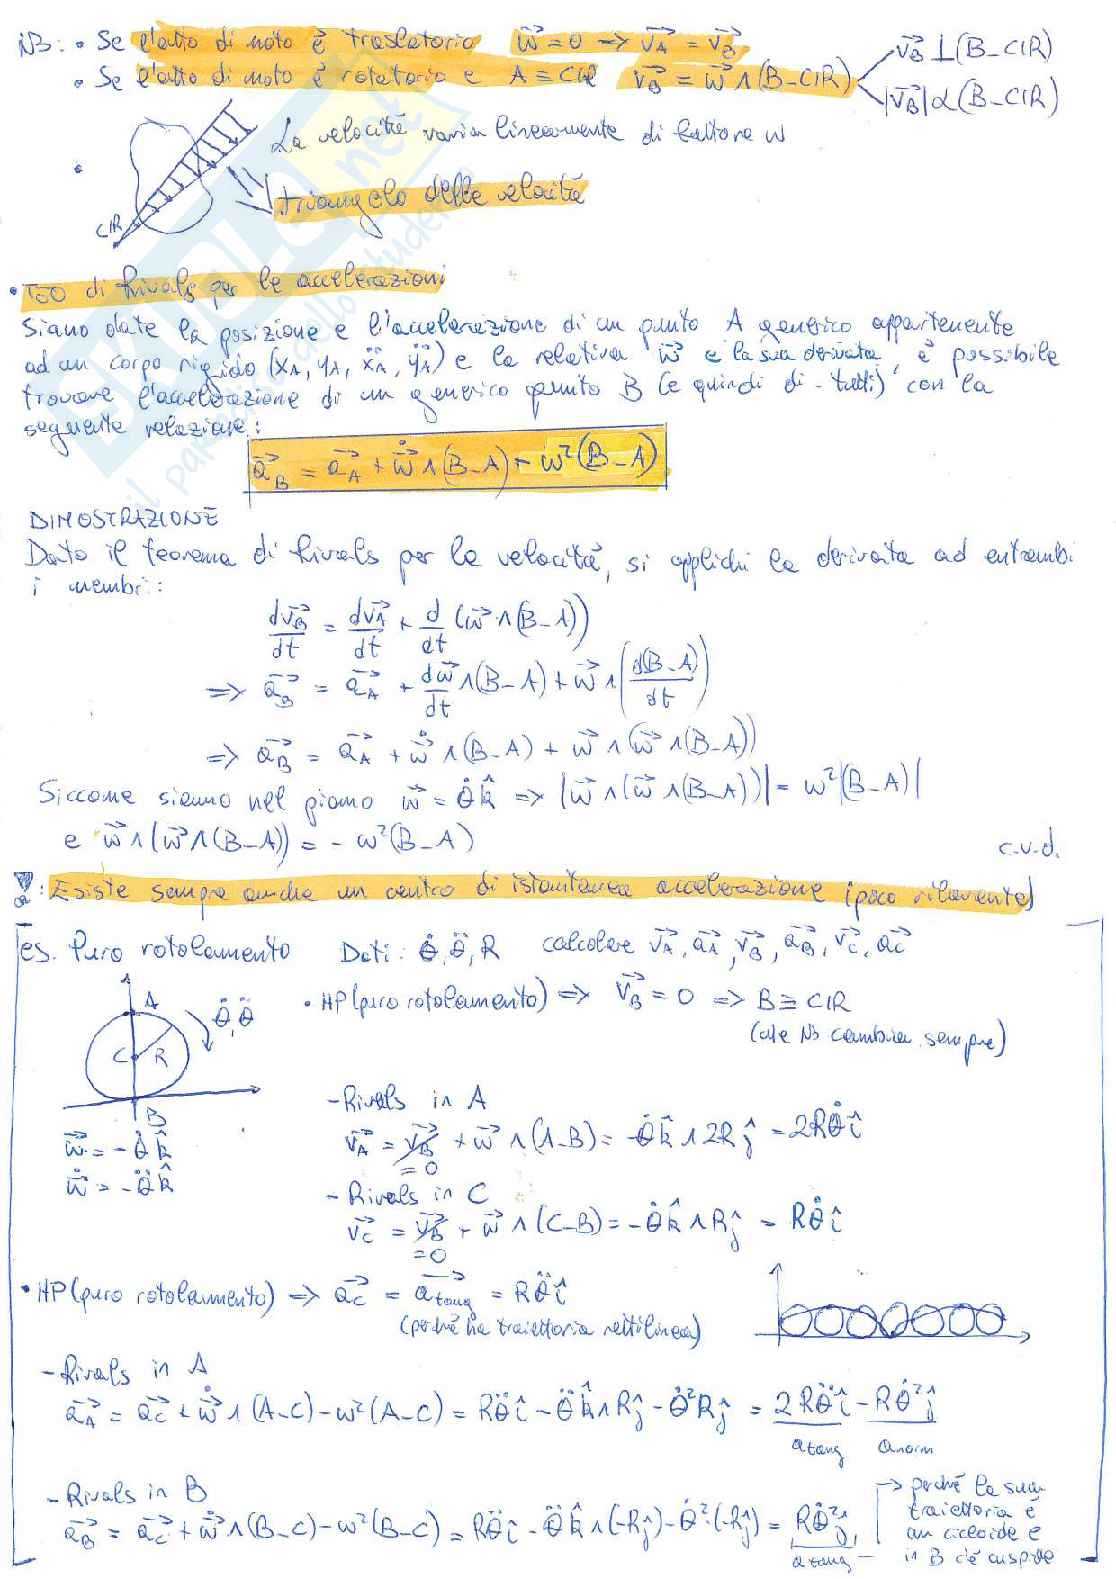 NB: • Se l'atto di moto è traslatorio ω⃗ = 0 → v⃗_A = v⃗_B
• Se l'atto di moto è rotatorio e A ≡ CIR v⃗_B = ω⃗ ∧ (B-CIR)
v⃗_B ⊥ (B-CIR)
|v⃗_B| α (B-CIR)
La velocità varia linearmente di fattore ω
triangolo delle velocità
CIR
• Teo di Rivals per le accelerazioni
Siano date la posizione e l'accelerazione di un punto A generico appartenente
ad un corpo rigido (x_A, y_A, ẍ_A, ÿ_A) e la relativa ω⃗ e la sua derivata, è possibile
trovare l'accelerazione di un generico punto B (e quindi di tutti) con la
seguente relazione:
a⃗_B = a⃗_A + ω⃗̇ ∧ (B-A) - ω²(B-A)
DIMOSTRAZIONE
Dato il teorema di Rivals per la velocità, si applichi la derivata ad entrambi
i membri:
dv⃗_B/dt = dv⃗_A/dt + d/dt (ω⃗ ∧ (B-A))
=> a⃗_B = a⃗_A + dω⃗/dt ∧ (B-A) + ω⃗ ∧ (d(B-A)/dt)
=> a⃗_B = a⃗_A + ω⃗̇ ∧ (B-A) + ω⃗ ∧ (ω⃗ ∧ (B-A))
Siccome siamo nel piano ω⃗ = θ̇ k̂ => |ω⃗ ∧ (ω⃗ ∧ (B-A))| = ω²|(B-A)|
e ω⃗ ∧ (ω⃗ ∧ (B-A)) = - ω²(B-A) c.v.d.
: Esiste sempre anche un centro di istantanea accelerazione (poco rilevante)
es. Puro rotolamento Dati: θ̇, θ̈, R calcolare v⃗_A, a⃗_A, v⃗_B, a⃗_B, v⃗_C, a⃗_C
• HP (puro rotolamento) => v⃗_B = 0 => B ≡ CIR
(che NB cambia sempre)
A
θ̇, θ̈
C R
B
ω⃗ = -θ̇ k̂
ω⃗̇ = -θ̈ k̂
- Rivals in A
v⃗_A = v⃗_B + ω⃗ ∧ (A-B) = -θ̇ k̂ ∧ 2R ĵ = 2Rθ̇ î
= 0
- Rivals in C
v⃗_C = v⃗_B + ω⃗ ∧ (C-B) = -θ̇ k̂ ∧ R ĵ = Rθ̇ î
= 0
• HP (puro rotolamento) => a⃗_C = a⃗_tang = Rθ̈ î
(perché ha traiettoria rettilinea)
- Rivals in A
a⃗_A = a⃗_C + ω⃗̇ ∧ (A-C) - ω²(A-C) = Rθ̈ î - θ̈ k̂ ∧ R ĵ - θ̇² R ĵ = 2Rθ̈ î - Rθ̇² ĵ
a tang a norm
- Rivals in B
a⃗_B = a⃗_C + ω⃗̇ ∧ (B-C) - ω²(B-C) = Rθ̈ î - θ̈ k̂ ∧ (-R ĵ) - θ̇²·(-R ĵ) = Rθ̇² ĵ
a tang
→ perché la sua
traiettoria è
un cicloide e
in B c'è cuspide